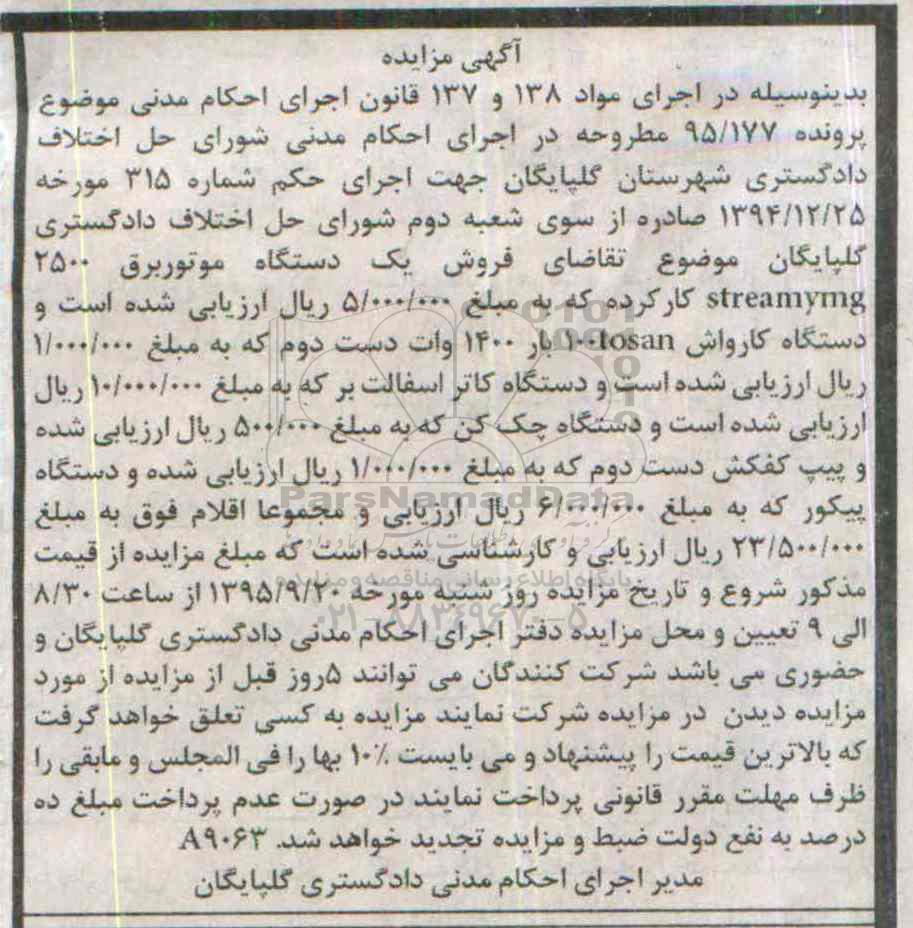 آگهی مزایده
بدینوسیله در اجرای مواد ۱۳۸ و ۱۳۷ قانون اجرای احکام مدنی موضوع
پرونده ۹۵/۱۷۷ مطروحه در اجرای احکام مدنی شورای حل اختلاف
دادگستری شهرستان گلپایگان جهت اجرای حکم شماره ۳۱۵ مورخه
۱۳۹۴/۱۲/۲۵ صادره از سوی شعبه دوم شورای حل اختلاف دادگستری
گلپایگان موضوع تقاضای فروش یک دستگاه موتوربرق ۲۵۰۰
streamymg کارکرده که به مبلغ ۵/۰۰۰/۰۰۰ ریال ارزیابی شده است و
دستگاه کارواش ۱۰۰tosan بار ۱۴۰۰ وات دست دوم که به مبلغ ۱/۰۰۰/۰۰۰
ریال ارزیابی شده است و دستگاه کاتر اسفالت بر که به مبلغ ۱۰/۰۰۰/۰۰۰ ریال
ارزیابی شده است و دستگاه چک کن که به مبلغ ۵۰۰/۰۰۰ ریال ارزیابی شده
و پیپ کفکش دست دوم که به مبلغ ۱/۰۰۰/۰۰۰ ریال ارزیابی شده و دستگاه
پیکور که به مبلغ ۶/۰۰۰/۰۰۰ ریال ارزیابی و مجموعا اقلام فوق به مبلغ
۲۳/۵۰۰/۰۰۰ ریال ارزیابی و کارشناسی شده است که مبلغ مزایده از قیمت
مذکور شروع و تاریخ مزایده روز شنبه مورخه ۱۳۹۵/۹/۲۰ از ساعت ۸/۳۰
الی ۹ تعیین و محل مزایده دفتر اجرای احکام مدنی دادگستری گلپایگان و
حضوری می باشد شرکت کنندگان می توانند ۵روز قبل از مزایده از مورد
مزایده دیدن در مزایده شرکت نمایند مزایده به کسی تعلق خواهد گرفت
که بالاترین قیمت را پیشنهاد و می بایست ۱۰٪ بها را فی المجلس و مابقی را
ظرف مهلت مقرر قانونی پرداخت نمایند در صورت عدم پرداخت مبلغ ده
درصد به نفع دولت ضبط و مزایده تجدید خواهد شد. A۹۰۶۳
مدیر اجرای احکام مدنی دادگستری گلپایگان
ParsNamadData
پایگاه اطلاع رسانی مناقصه و مزایده